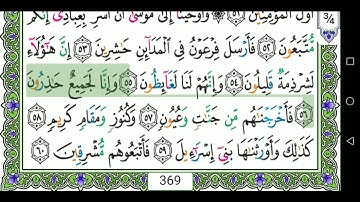 أَوَّلَ الْمُؤْمِنِينَ ﴿٥١﴾ وَأَوْحَيْنَا إِلَىٰ مُوسَىٰ أَنْ أَسْرِ بِعِبَادِي إِنَّكُم
مُّتَّبَعُونَ ﴿٥٢﴾ فَأَرْسَلَ فِرْعَوْنُ فِي الْمَدَائِنِ حَاشِرِينَ ﴿٥٣﴾ إِنَّ هَٰؤُلَاءِ
لَشِرْذِمَةٌ قَلِيلُونَ ﴿٥٤﴾ وَإِنَّهُمْ لَنَا لَغَائِظُونَ ﴿٥٥﴾ وَإِنَّا لَجَمِيعٌ حَاذِرُونَ
﴿٥٦﴾ فَأَخْرَجْنَاهُم مِّن جَنَّاتٍ وَعُيُونٍ ﴿٥٧﴾ وَكُنُوزٍ وَمَقَامٍ كَرِيمٍ ﴿٥٨﴾
كَذَٰلِكَ وَأَوْرَثْنَاهَا بَنِي إِسْرَائِيلَ ﴿٥٩﴾ فَأَتْبَعُوهُم مُّشْرِقِينَ ﴿٦٠﴾
369
¾